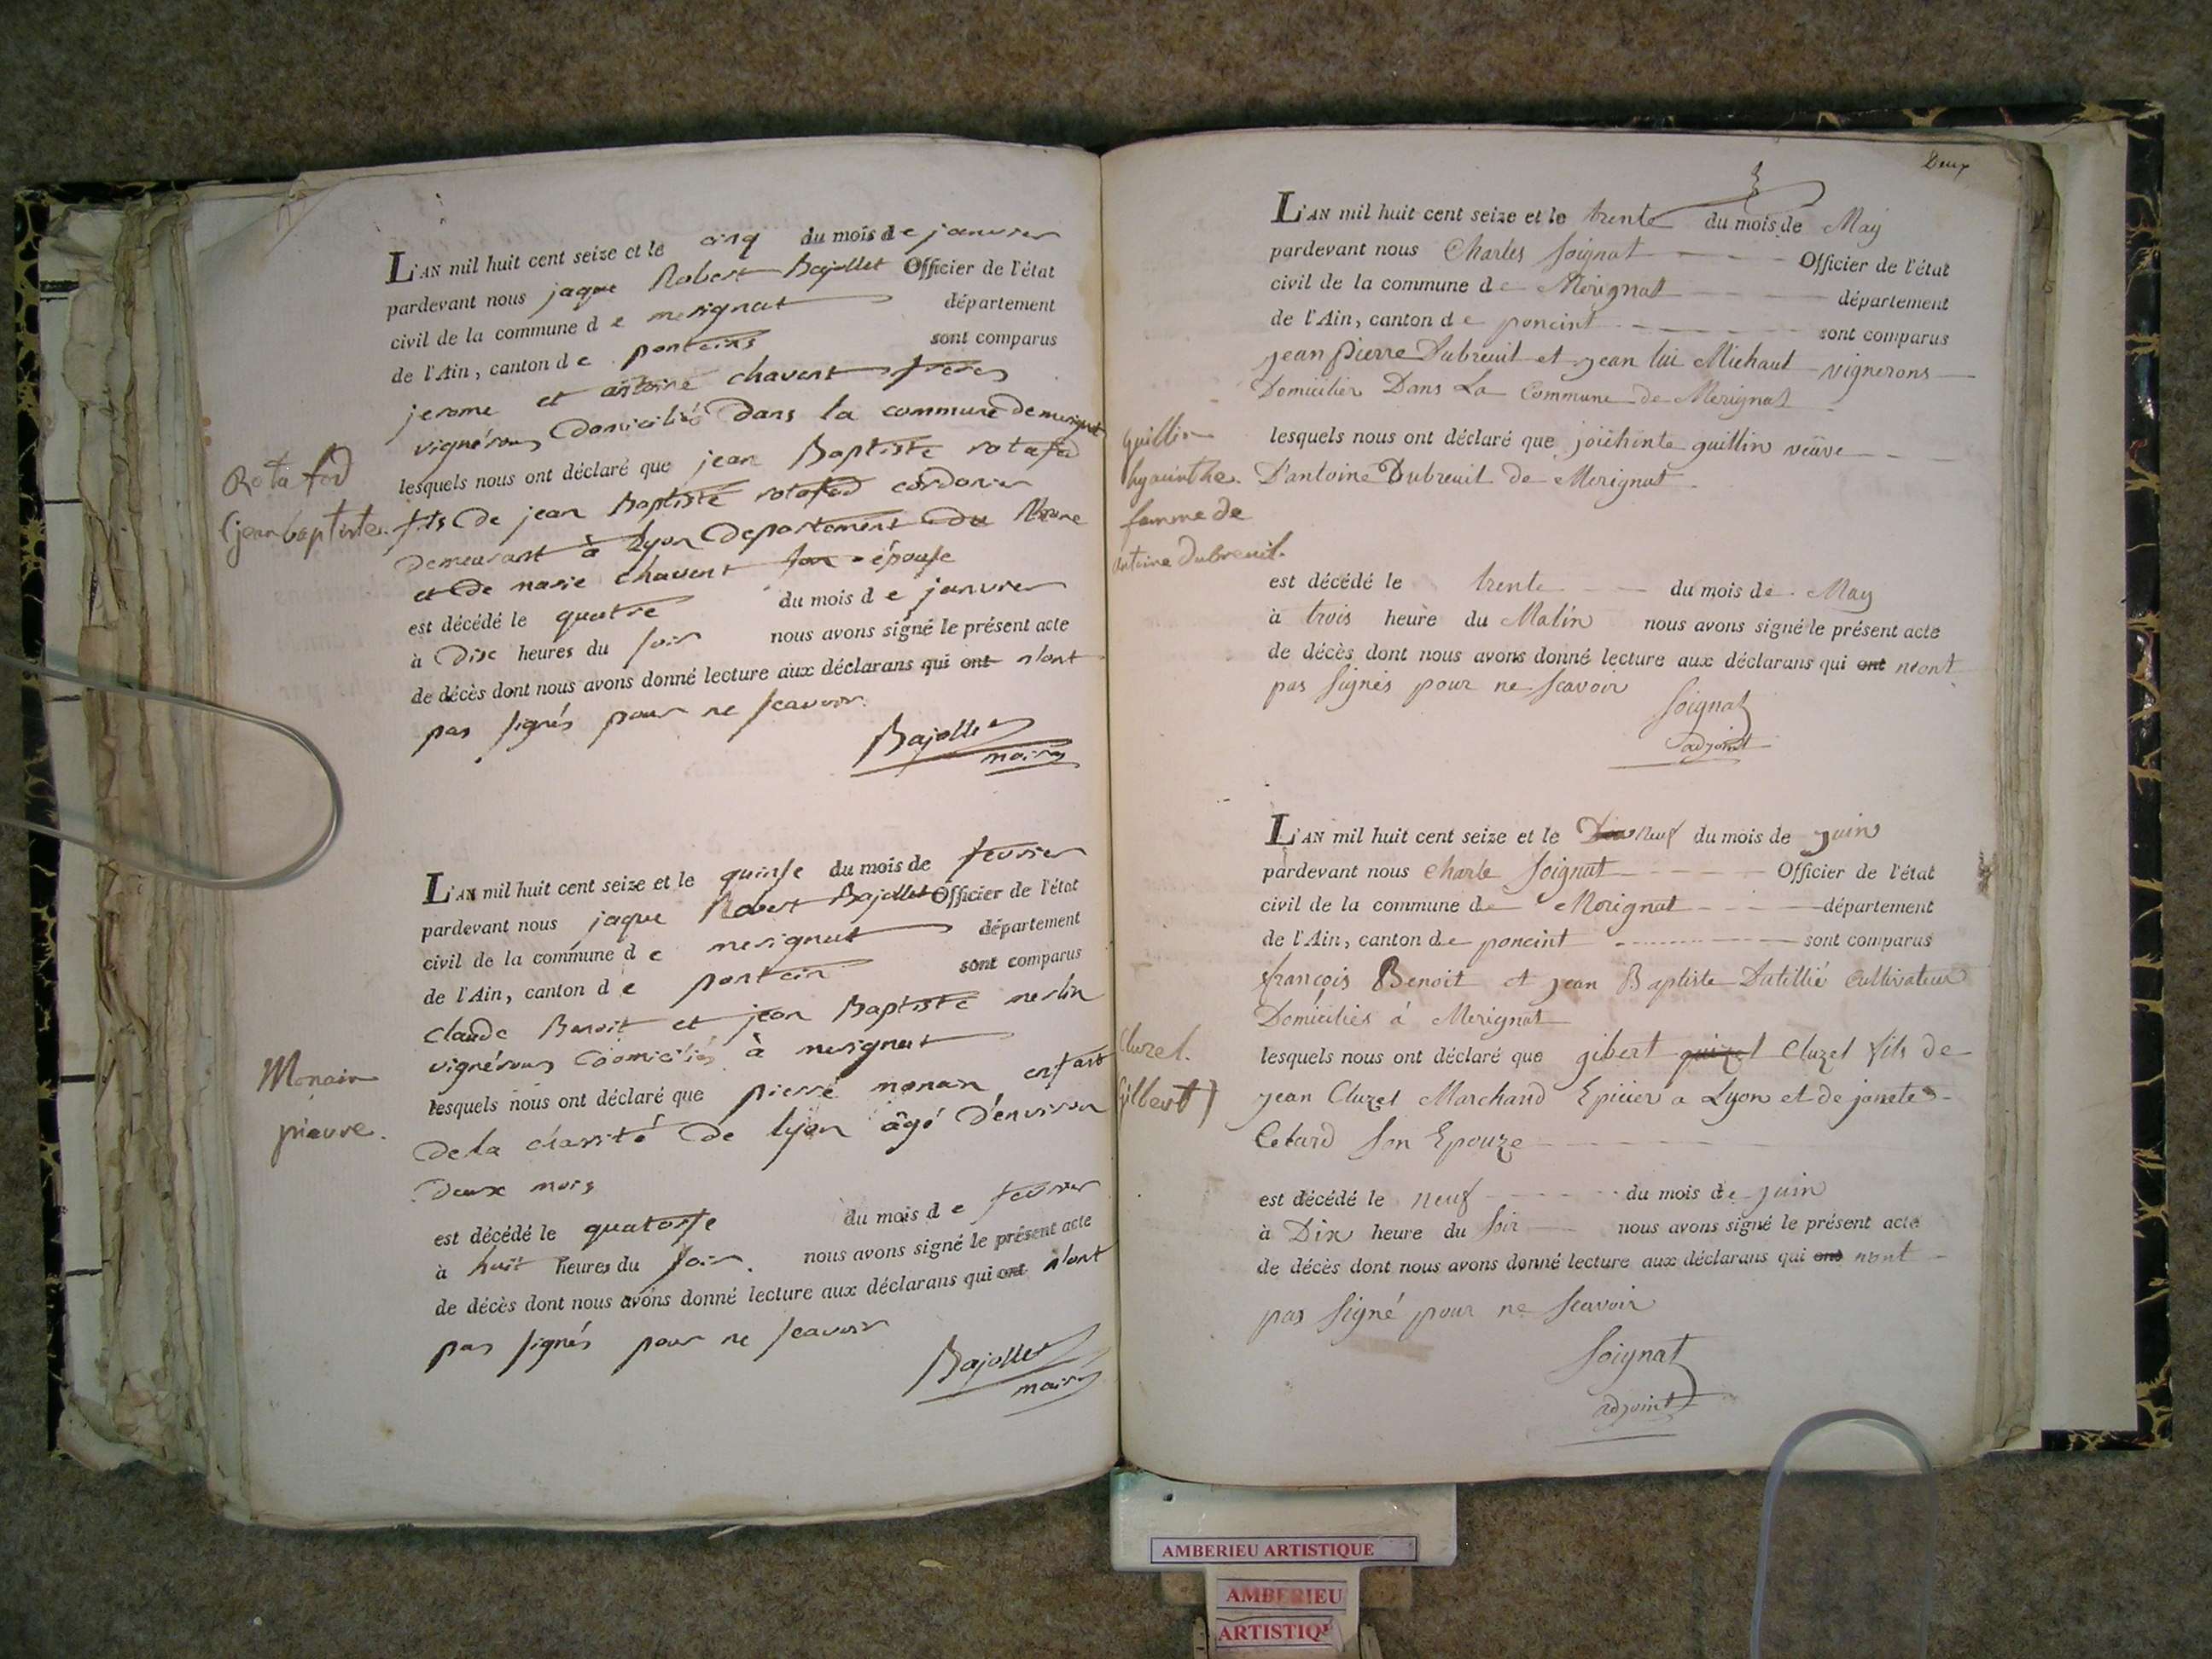 L'AN mil huit cent seize et le cinq du mois de janvier
pardevant nous jaque Robert Bajollet Officier de l'état
civil de la commune de merignat département
de l'Ain, canton de ponteins sont comparus
jerome et antoine chavent freres
vignérons Domiciliés Dans la commune De merignat
lesquels nous ont déclaré que jean Baptiste rotafod
fils De jean Baptiste rotafod cordonier
Demeurant à lyon Departement Du Rhone
et De marie chavent son épouse
est décédé le quatre du mois de janvier
à Dix heures du soir nous avons signé le présent acte
de décès dont nous avons donné lecture aux déclarans qui ont n'ont
pas signés pour ne scavoir.
Bajollet
maire
Rota fod
(jean baptiste.
L'AN mil huit cent seize et le quinse du mois de fevrier
pardevant nous jaque Robert Bajollet Officier de l'état
civil de la commune de merignat département
de l'Ain, canton de pontein sont comparus
claude Benoit et jean Baptiste merlin
vignérons Domiciliés à merignat
lesquels nous ont déclaré que pierre monain enfant
De la charité De lyon âgé D'environ
Deux mois
est décédé le quatorse du mois de fevrier
à huit heures du soir. nous avons signé le présent acte
de décès dont nous avons donné lecture aux déclarans qui ont n'ont
pas signés pour ne scavoir
Bajollet
maire
Monain
pieurre.
Deux
L'AN mil huit cent seize et le trente du mois de May
pardevant nous Charles Soignat Officier de l'état
civil de la commune de Merignat département
de l'Ain, canton de poncint sont comparus
jean pierre Dubreuil et jean lui Michaut vignerons
Domicilier Dans La Commune de Merignat
lesquels nous ont déclaré que joiehinte guillin veuve
D'antoine Dubreuil de Merignat
est décédé le trente du mois de May
à trois heure du Matin nous avons signé le présent acte
de décès dont nous avons donné lecture aux déclarans qui ont n'ont
pas signés pour ne scavoir
Soignat
adjoint
guillin
hyacinthe.
femme de
antoine dubreuil.
L'AN mil huit cent seize et le Dix neuf du mois de juin
pardevant nous charle Soignat Officier de l'état
civil de la commune de Merignat département
de l'Ain, canton de poncint sont comparus
françois Benoit et jean Baptiste Dutillié Cultivateur
Domiciliés à Merignat
lesquels nous ont déclaré que gibert guizel Cluzel fils de
jean Cluzel Marchand Epicier a Lyon et de janete
Celard Son Epouze
est décédé le neuf du mois de juin
à Dix heure du soir nous avons signé le présent acte
de décès dont nous avons donné lecture aux déclarans qui ont nont
pas signé pour ne scavoir
Soignat
adjoint
Cluzel.
Gilbert)
AMBERIEU ARTISTIQUE
AMBERIEU
ARTISTIQU